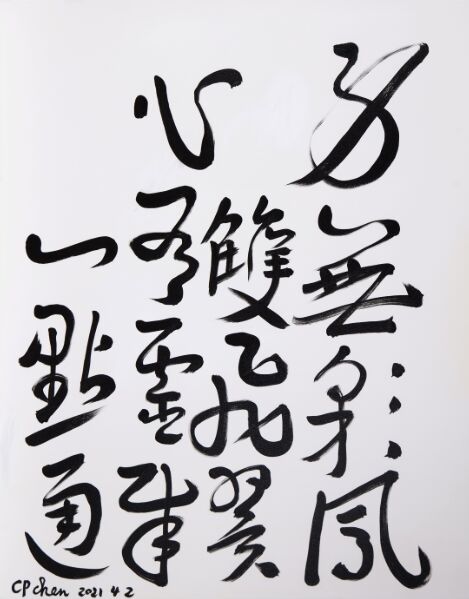 身無彩鳳
雙飛翼
心有靈犀
一點通
CP chen 2021 4 2